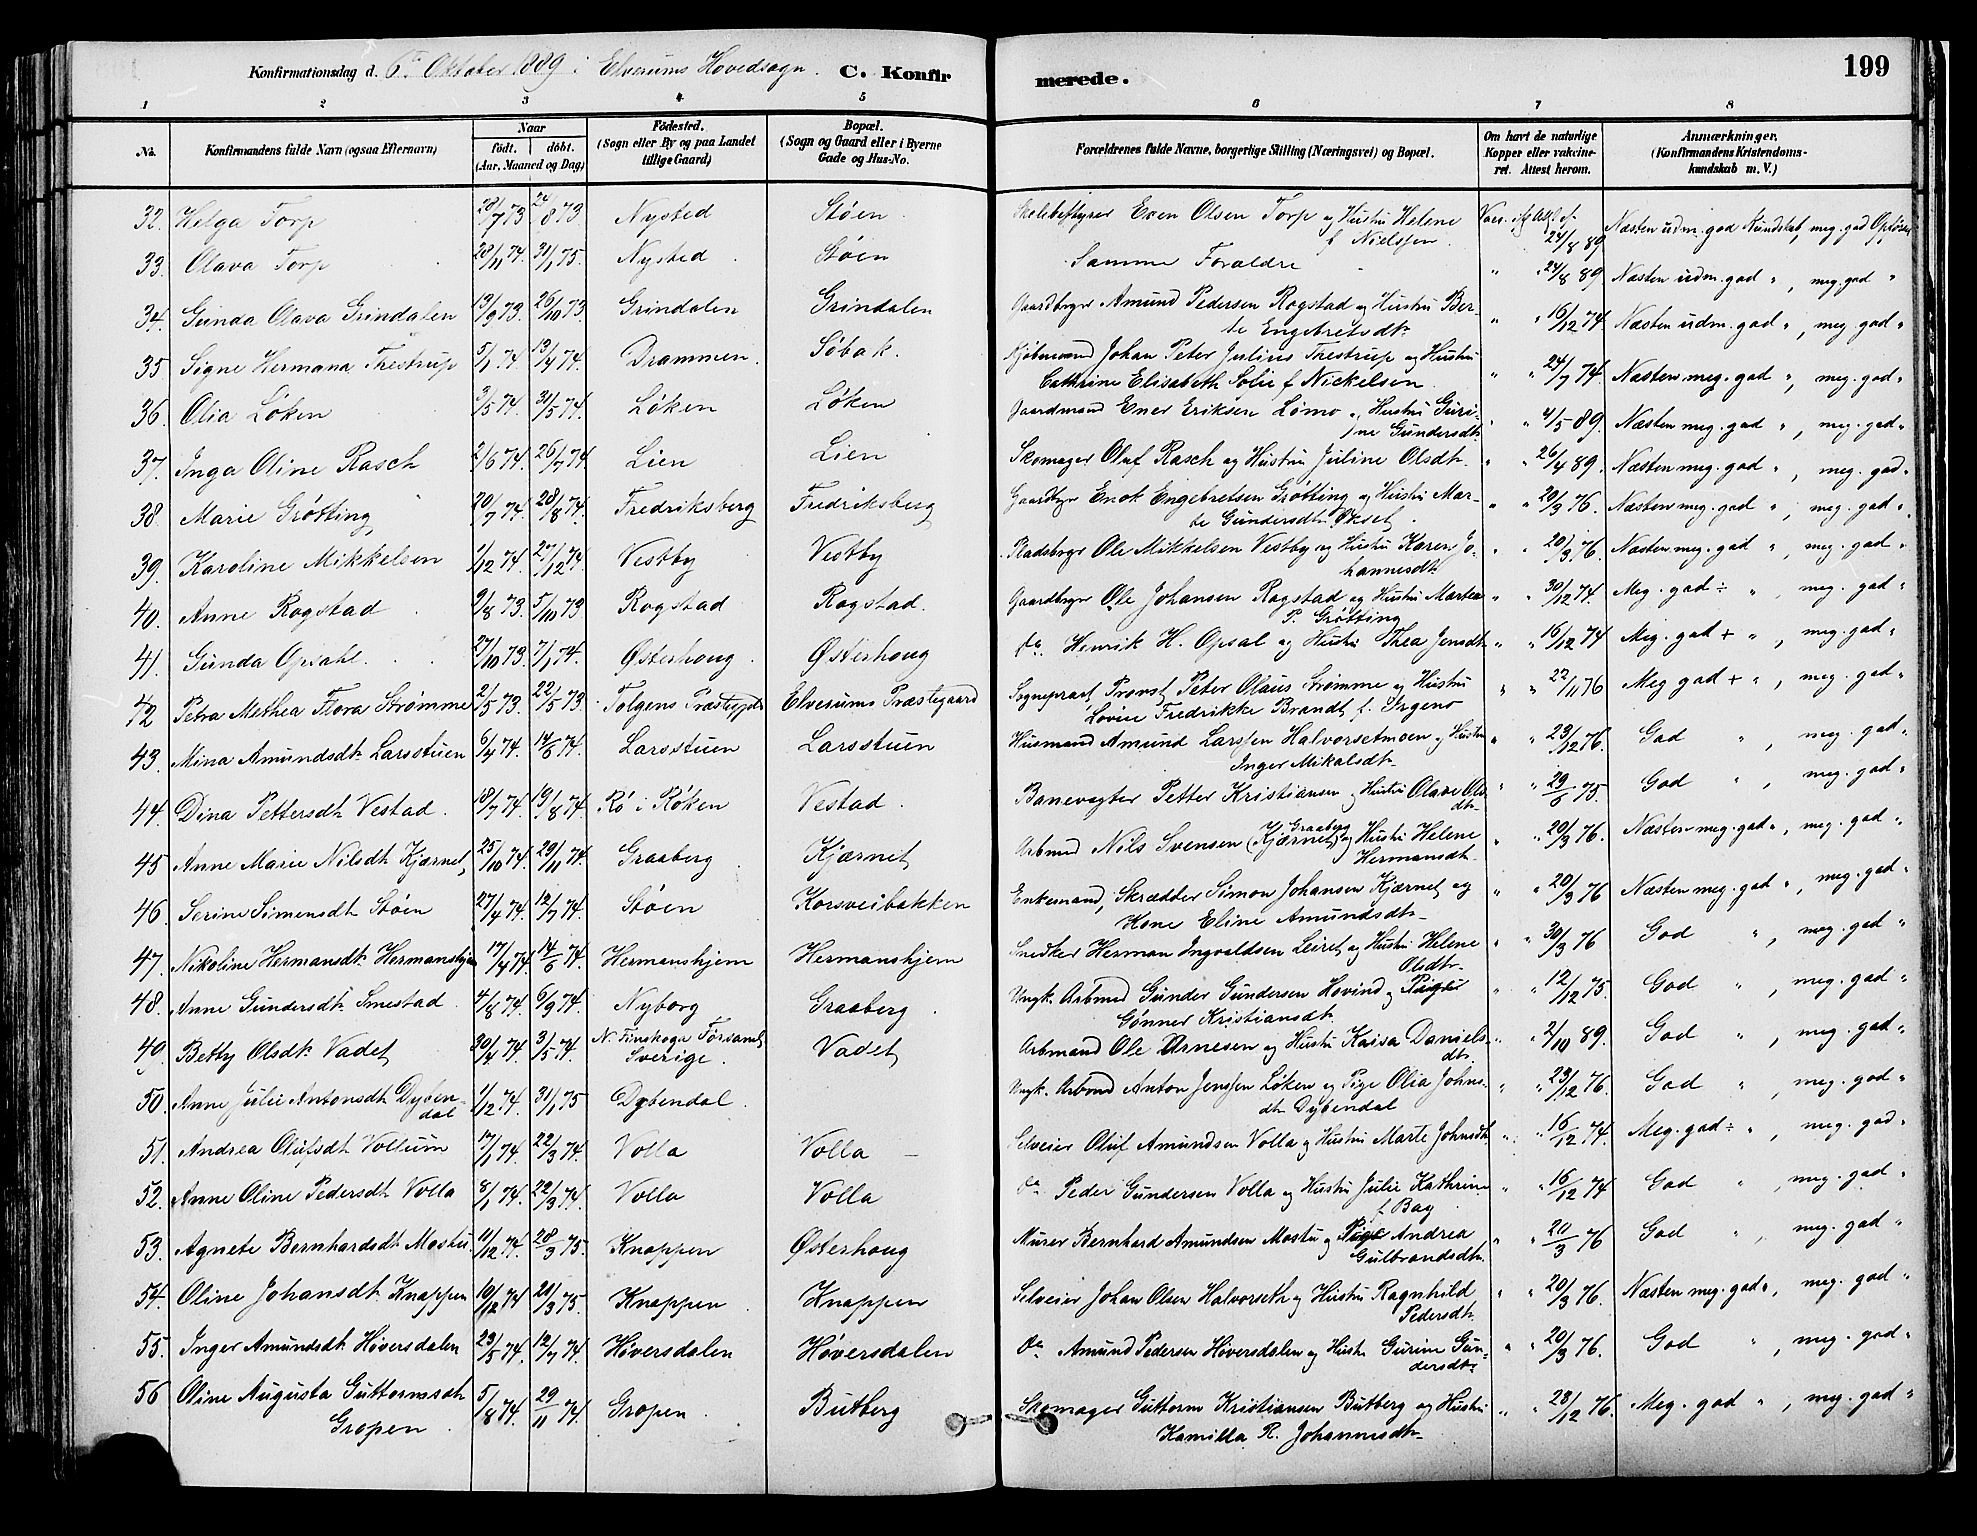 Konfirmationsdag d. 6te Oktober 1889 i Elverums Hovedsogn. C. Konfirmerede. 199
1 2 3 4 5 6 7 8
No. Konfirmandens fulde Navn (ogsaa Efternavn) Naar født. døbt. (Aar, Maaned og Dag) Fødested. (Sogn eller By og paa Landet tillige Gaard) Bopæl. (Sogn og Gaard eller i Byerne Gade og Hus-No. Forældrenes fulde Navne, borgerlige Stilling (Næringsvei) og Bopæl. Om havt de naturlige Kopper eller vakcineret. Attest herom. Anmærkninger. (Konfirmandens Kristendomskundskab m. V.)
32. Helga Torp 28/7 73 24/8 73 Nysted Støen Skolebestyrer Even Olsen Torp og Hustru Helene f Nielssen. Vacc. 24/8 89 Næsten udm. god Kundskab, meg. god Opførsel
33. Olava Torp 28/11 74. 31/1 75. Nysted Støen Samme Forældre " " 24/8 89 Næsten udm. god ", meg. god "
34. Gunda Olava Grindalen 13/9 73. 26/10 73. Grindalen Grindalen Gaardbryr Amund Pedersen Rogstad og Hustru Berte Engebretsdt. " " 16/12 74 Næsten udm. god ", meg god "
35 Signe Hermana Trestrup 5/1 74. 13/4 74. Drammen. Søbak. Kjøbmand Johan Peter Julius Trestrup og Hustru Cathrine Elisabeth Solie f Nickelsen. " " 24/7 74 Næsten meg. god ", meg. god "
36. Olia Løken 3/5 74. 31/5 74. Løken Løken Gaardmand Ener Eriksen Lømo og Hustru Gurine Gundersdt. " " 4/5 89. Næsten meg. god ", meg. god "
37. Inga Oline Rasch 2/6 74. 26/7 74 Lien Lien Skomager Oluf Rasch og Hustru Juline Olsdt. " " 26/4 89. Næsten meg. god ", meg. god "
38. Marie Grøtting 20/7 74. 28/8 74. Fredriksberg Fredriksberg Gaardbyr Enok Engebretsen Grøtting og Hustru Marte Gundersdt. Økset. " " 20/3 76. Næsten meg. god ", meg. god "
39. Karoline Mikkelsen 1/12 74. 27/12 74. Vestby Vestby Pladsbryr Ole Mikkelsen Vestby og Hustru Karen Johannesdt. " " 20/3 76. Næsten meg. god ", meg. god "
40. Anne Rogstad 9/8 73. 5/10 73 Rogstad Rogstad. Gaardbryr Ole Johansen Rogstad og Hustru Martea P. Grøtting " " 30/12 74. Meg. god ÷ ", meg. god "
41. Gunda Opsahl. 27/10 73. 7/1 74. Østerhoug. Østerhoug do. Henrik H. Opsal og Hustru Thea Jensdt. " " 16/12 74 Meg. god + ", meg. god "
42 Petra Mathea Flora Strømme 2/5 73. 22/5 73. Tolgens Præstegjeld Elverums Præstegaard Sognepræst, Provst Peter Olaus Strømme og Hustru Lovise Fredrikke Brandt f. Irgens " " 22/11 76 Meg god + ", meg. god "
43. Mina Amundsdt. Larsstuen 6/4 74. 14/6 74. Larsstuen Larsstuen Husmand Amund Larssen Halvorsetmoen og Hustru Inger Mikalsdt. " " 23/12 76. God ", meg. god "
44. Dina Pettersdt. Vestad. 18/7 74. 19/8 74. Rø i Røken Vestad. Banevogter Petter Kristiansen og Hustru Olave Olsdt. " " 29/6 75. God ", meg. god "
45 Anne Marie Nilsdt Kjærnet, 25/10 74. 29/11 74. Graaberg Kjærnet Arbmd Nils Svensen (Kjærnet) Graaberg og Hustru Helene Hermansdt. " " 20/3 76. Næsten meg. god ", meg. god "
46. Serine Simensdt Støen 27/4 74. 12/7 74. Støen Korsveibakken Enkemand, Skrædder Simon Johansen Kjærnet og Kone Eline Amundsdt. " " 20/3 76 Næsten meg. god ", meg. god "
47. Nikoline Hermansdt. Hermanshjem 17/4 74. 14/6 74. Hermanshjem Hermanshjem Snedker Herman Ingvaldsen Leiret og Hustru Helene Olsdtr. " " 30/3 76 God ", meg. god "
48. Anne Gundersdt. Smestad. 4/8 74. 6/9 74. Nyborg Graaberg. Ungk. Arbmd Gunder Gundersen Hovind og Pige Gønner Kristiansdt. " " 12/12 75. God ", meg. god "
49. Betty Olsdt. Vadet 30/4 74. 3/5 74. N. Finskoga Førsaml. Sverige. Vadet Arbmand Ole Arnesen og Hustru Kaisa Danielsdt. " " 2/10 89. God ", meg. god "
50. Anne Julie Antonsdt Dybendal 1/12 74. 31/1 75 Dybendal. Ungk. Arbmd Anton Jenssen Løken og Pige Olia Johnsdt. Dybendal " " 23/12 76. God ", meg. god "
51. Andrea Olufsdt. Vollum 17/1 74. 22/3 74. Volla Volla Selveier Oluf Amundsen Volla og Hustru Marte Johnsdt. " " 16/12 74. Meg. god ÷ ", meg. god "
52. Anne Oline Pedersdt. Volla 8/1 74. 22/3 74. Volla Volla do Peder Gundersen Volla og Hustru Julie Kathrine f. Bay " " 16/12 74 God ", meg. god "
53. Agnete Bernhardsdt. Mostu 11/12 74. 28/3 75. Knappen Østerhoug Murer Bernhard Amundsen Mostu og Pige Andrea Gulbrandsdt. " " 20/3 76 God ", meg. god "
54. Oline Johansdt. Knappen 10/12 74 20/3 75. Knappen. Knappen Selveier Johan Olsen Halvorseth og Hustru Ragnhild Pedersdt. " " 20/3 76. Næsten meg. god ", meg. god "
55. Inger Amundsdt. Høversdalen 23/5 74. 12/7 74. Høversdalen Høversdalen do Amund Pedersen Høversdalen og Hustr Gurine Gundersdt. " " 20/3 76. God ", meg. god "
56 Oline Augusta Guttormsdt Gropen. 5/8 74. 29/11 74. Gropen. Butberg Skomager Guttorm Kristiansen Butberg og Hustru Kamilla R. Johannesdt. " " 28/12 76. Meg. god ", meg. god "